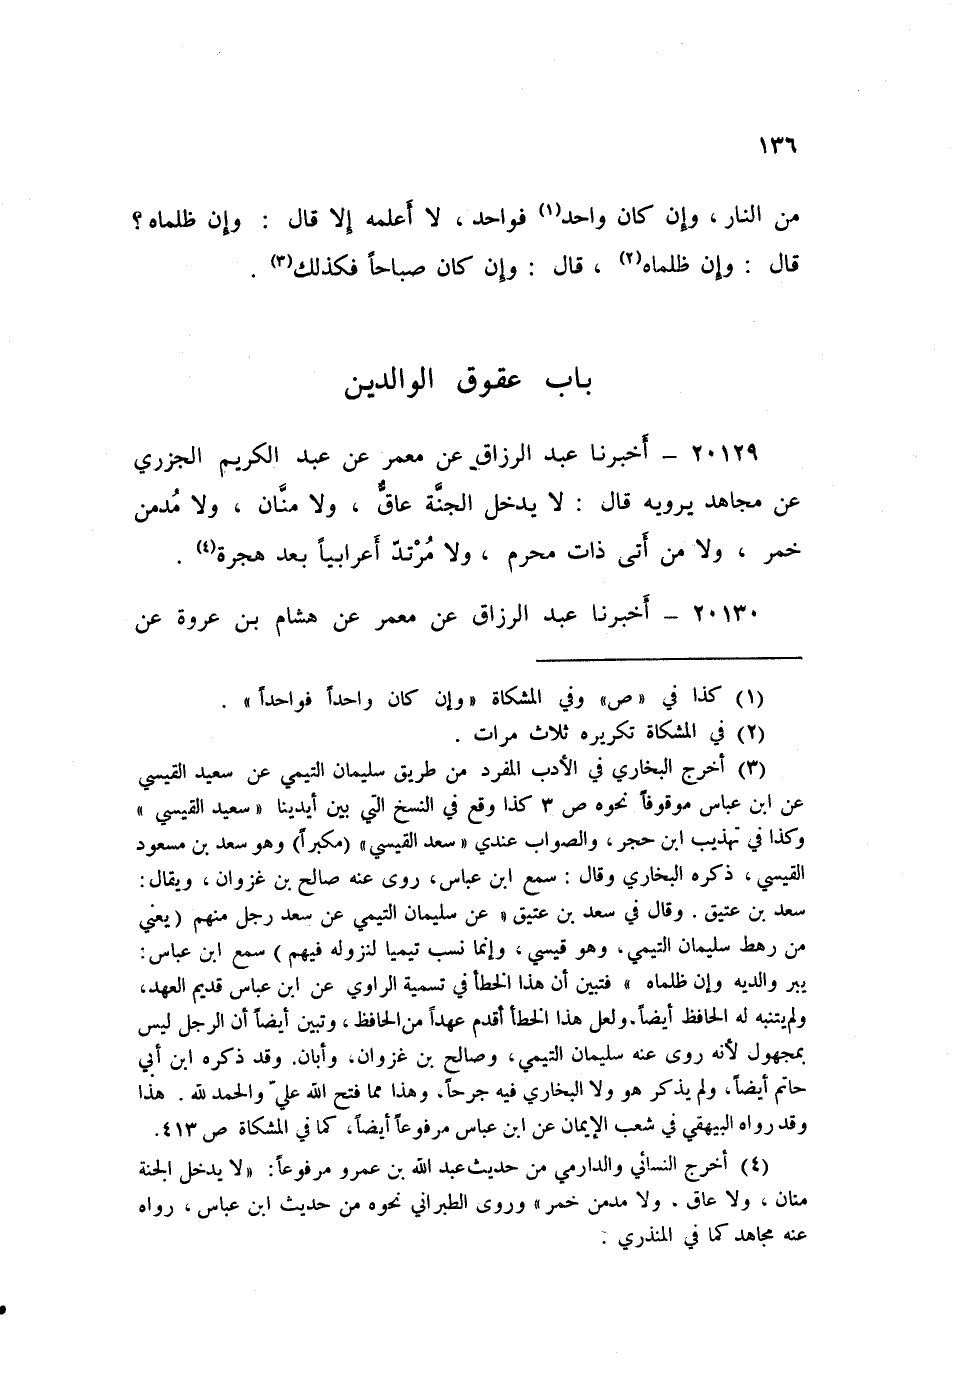 ١٣٦
من النار ، وإن كان واحد(١) فواحد ، لا أَعلمه إلا قال : وإن ظلماه ؟
قال : وإن ظلماه(٢) ، قال : وإن كان صباحاً فكذلك(٣) .
باب عقوق الوالدين
٢٠١٢٩ - أَخبرنا عبد الرزاق عن معمر عن عبد الكريم الجزري
عن مجاهد يرويه قال : لا يدخل الجنَّة عاقٌّ ، ولا منَّان ، ولا مُدمن
خمر ، ولا من أَتى ذات محرم ، ولا مُرْتدّ أَعرابياً بعد هجرة(٤) .
٢٠١٣٠ - أَخبرنا عبد الرزاق عن معمر عن هشام بن عروة عن
(١) كذا في «ص» وفي المشكاة «وإن كان واحداً فواحداً» .
(٢) في المشكاة تكريره ثلاث مرات .
(٣) أخرج البخاري في الأدب المفرد من طريق سليمان التيمي عن سعيد القيسي
عن ابن عباس موقوفاً نحوه ص ٣ كذا وقع في النسخ التي بين أيدينا «سعيد القيسي »
وكذا في تهذيب ابن حجر، والصواب عندي «سعد القيسي» (مكبراً) وهو سعد بن مسعود
القيسي ، ذكره البخاري وقال : سمع ابن عباس، روى عنه صالح بن غزوان ، ويقال:
سعد بن عتيق . وقال في سعد بن عتيق « عن سليمان التيمي عن سعد رجل منهم (يعني
من رهط سليمان التيمي، وهو قيسي ، وإنما نسب تيميا لنزوله فيهم ) سمع ابن عباس:
يبر والديه وإن ظلماه » فتبين أن هذا الخطأ في تسمية الراوي عن ابن عباس قديم العهد،
ولم يتنبه له الحافظ أيضاً. ولعل هذا الخطأ أقدم عهداً من الحافظ ، وتبين أيضاً أن الرجل ليس
بمجهول لأنه روى عنه سليمان التيمي، وصالح بن غزوان، وأبان. وقد ذكره ابن أبي
حاتم أيضاً، ولم يذكر هو ولا البخاري فيه جرحاً. وهذا مما فتح الله عليّ والحمد لله . هذا
وقد رواه البيهقي في شعب الإيمان عن ابن عباس مرفوعاً أيضاً، كما في المشكاة ص ٤١٣.
(٤) أخرج النسائي والدارمي من حديث عبد الله بن عمرو مرفوعاً: «لا يدخل الجنة
منان ، ولا عاق . ولا مدمن خمر» وروى الطبراني نحوه من حديث ابن عباس ، رواه
عنه مجاهد كما في المنذري .